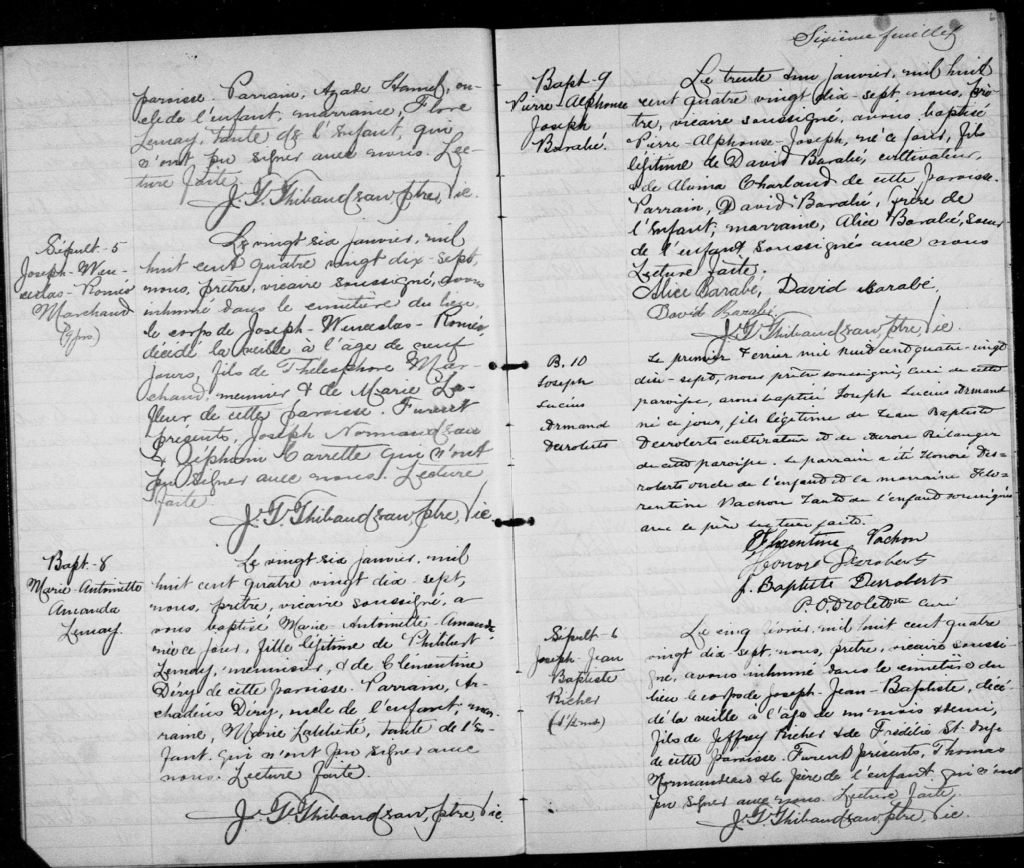 paroisse. Parrain, Azade Hamel, on-
cle de l'enfant, marraine, Flore
Lemay, tante de l'enfant, qui
n'ont pu signer avec nous. Lec-
ture faite.
J. T. Thibaudeau, ptre, Vic.
Sépult - 5
Joseph-Wen-
ceslas-Roméo
Marchand
(9 jrs.)
Le vingt six janvier, mil
huit cent quatre vingt dix-sept,
nous, prêtre, vicaire soussigné, avons
inhumé dans le cimetière du lieu,
le corps de Joseph-Wenceslas-Roméo,
décédé la veille à l'âge de neuf
jours, fils de Thélesphore Mar-
chand, meunier & de Marie La-
fleur de cette paroisse. Furent
présents, Joseph Normandeau
& Zéphirin Carrette qui n'ont
pu signer avec nous. Lecture
faite.
J. T. Thibaudeau, ptre, Vic.
Bapt - 8
Marie-Antoinette
Amanda
Lemay.
Le vingt six janvier, mil
huit cent quatre vingt dix-sept,
nous, prêtre, vicaire soussigné, a-
vons baptisé Marie-Antoinette-Amanda
née ce jour, fille légitime de Philibert
Lemay, menuisier, & de Clémentine
Déry de cette paroisse. Parrain, Ar-
chadius Déry, oncle de l'enfant, mar-
raine, Marie Laliberté, tante de l'en-
fant, qui n'ont pu signer avec
nous. Lecture faite.
J. T. Thibaudeau, ptre, Vic.
Sixième feuillet
Bapt - 9
Pierre-Alphonse
Joseph
Barabé.
Le trente & un janvier, mil huit
cent quatre vingt dix-sept, nous, prê-
tre, vicaire soussigné, avons baptisé
Pierre-Alphonse-Joseph, né ce jour, fils
légitime de David Barabé, cultivateur,
& de Alvina Charland de cette paroisse.
Parrain, David Barabé, frère de
l'enfant, marraine, Alice Barabé, soeur
de l'enfant soussignés avec nous
Lecture faite.
Alice Barabé, David Barabé,
David Barabé.
J. T. Thibaudeau, ptre, Vic.
B. 10
Joseph
Lucius
Armand
Desroberts
Le premier Fevrier mil huit cent quatre-vingt
dix-sept, nous prêtre soussigné, curé de cette
paroisse, avons baptisé Joseph Lucius Armand
né ce jour, fils légitime de Jean Baptiste
Desroberts cultivateur et de Aurore Bélanger
de cette paroisse. Le parrain a été Honoré Des-
roberts oncle de l'enfant et la marraine Flo-
rentine Vachon tante de l'enfant soussignés
avec le père lecture faite.
Florentine Vachon
Honoré Desroberts
J. Baptiste Desroberts
P. O. Drolet ptre curé
Sépult - 6
Joseph-Jean
Baptiste
Richer
Le cinq février, mil huit cent quatre
vingt dix sept, nous, prêtre, vicaire soussi-
gné, avons inhumé dans le cimetière du
lieu le corps de Joseph-Jean-Baptiste, décé-
dé la veille à l'âge de un mois & demi,
fils de Jeffrey Richer & de Fredélie St. Onge
de cette paroisse. Furent présents, Thomas
Normandeau & le père de l'enfant, qui n'ont
pu signer avec nous. Lecture faite.
J. T. Thibaudeau, ptre, Vic.